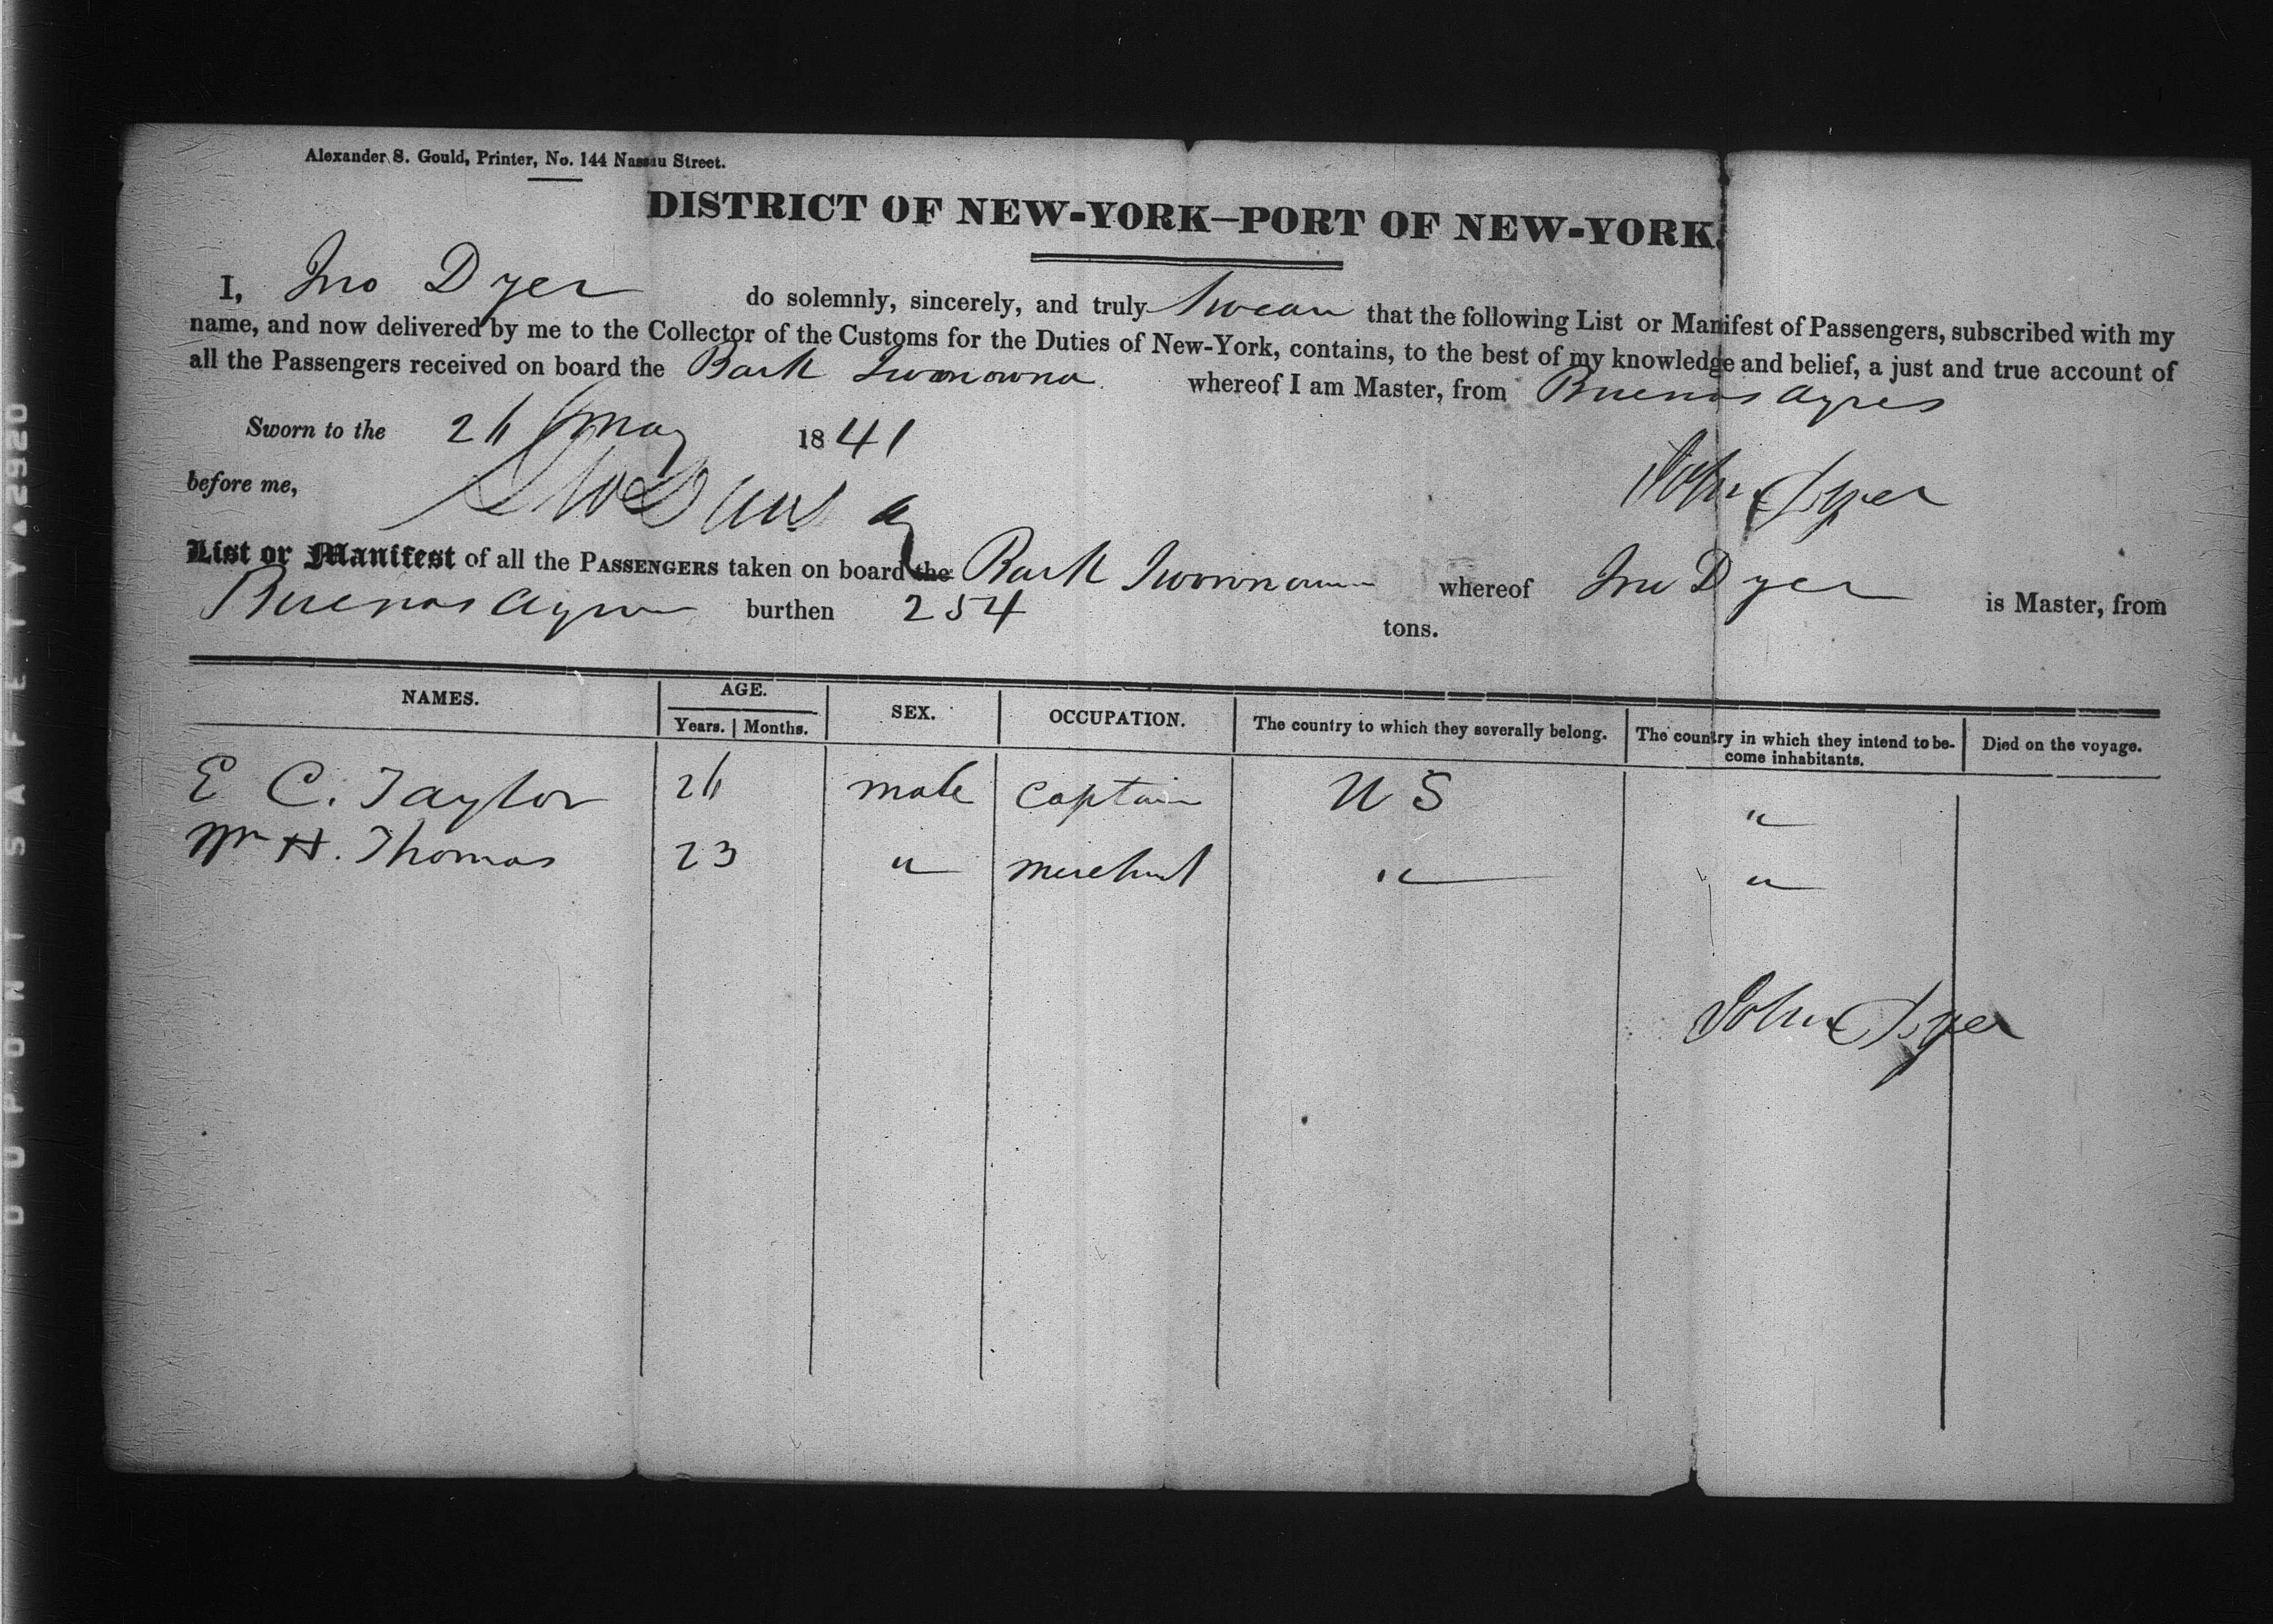 Alexander S. Gould, Printer, No. 144 Nassau Street.
DISTRICT OF NEW-YORK—PORT OF NEW-YORK.
I, Jno Dyer do solemnly, sincerely, and truly swear that the following List or Manifest of Passengers, subscribed with my
name, and now delivered by me to the Collector of the Customs for the Duties of New-York, contains, to the best of my knowledge and belief, a just and true account of
all the Passengers received on board the Bark whereof I am Master, from Buenos Ayres
Sworn to the 26 May 1841
before me,
John Dyer
List or Manifest of all the PASSENGERS taken on board the Bark whereof Jno Dyer is Master, from
Buenos Ayres burthen 254 tons.
NAMES. AGE. SEX. OCCUPATION. The country to which they severally belong. The country in which they intend to be- Died on the voyage.
Years. Months. come inhabitants.
E C. Taylor 26 male captain U S "
Wm H. Thomas 23 " merchant " "
John Dyer
DUPONT SAFETY ▲2920